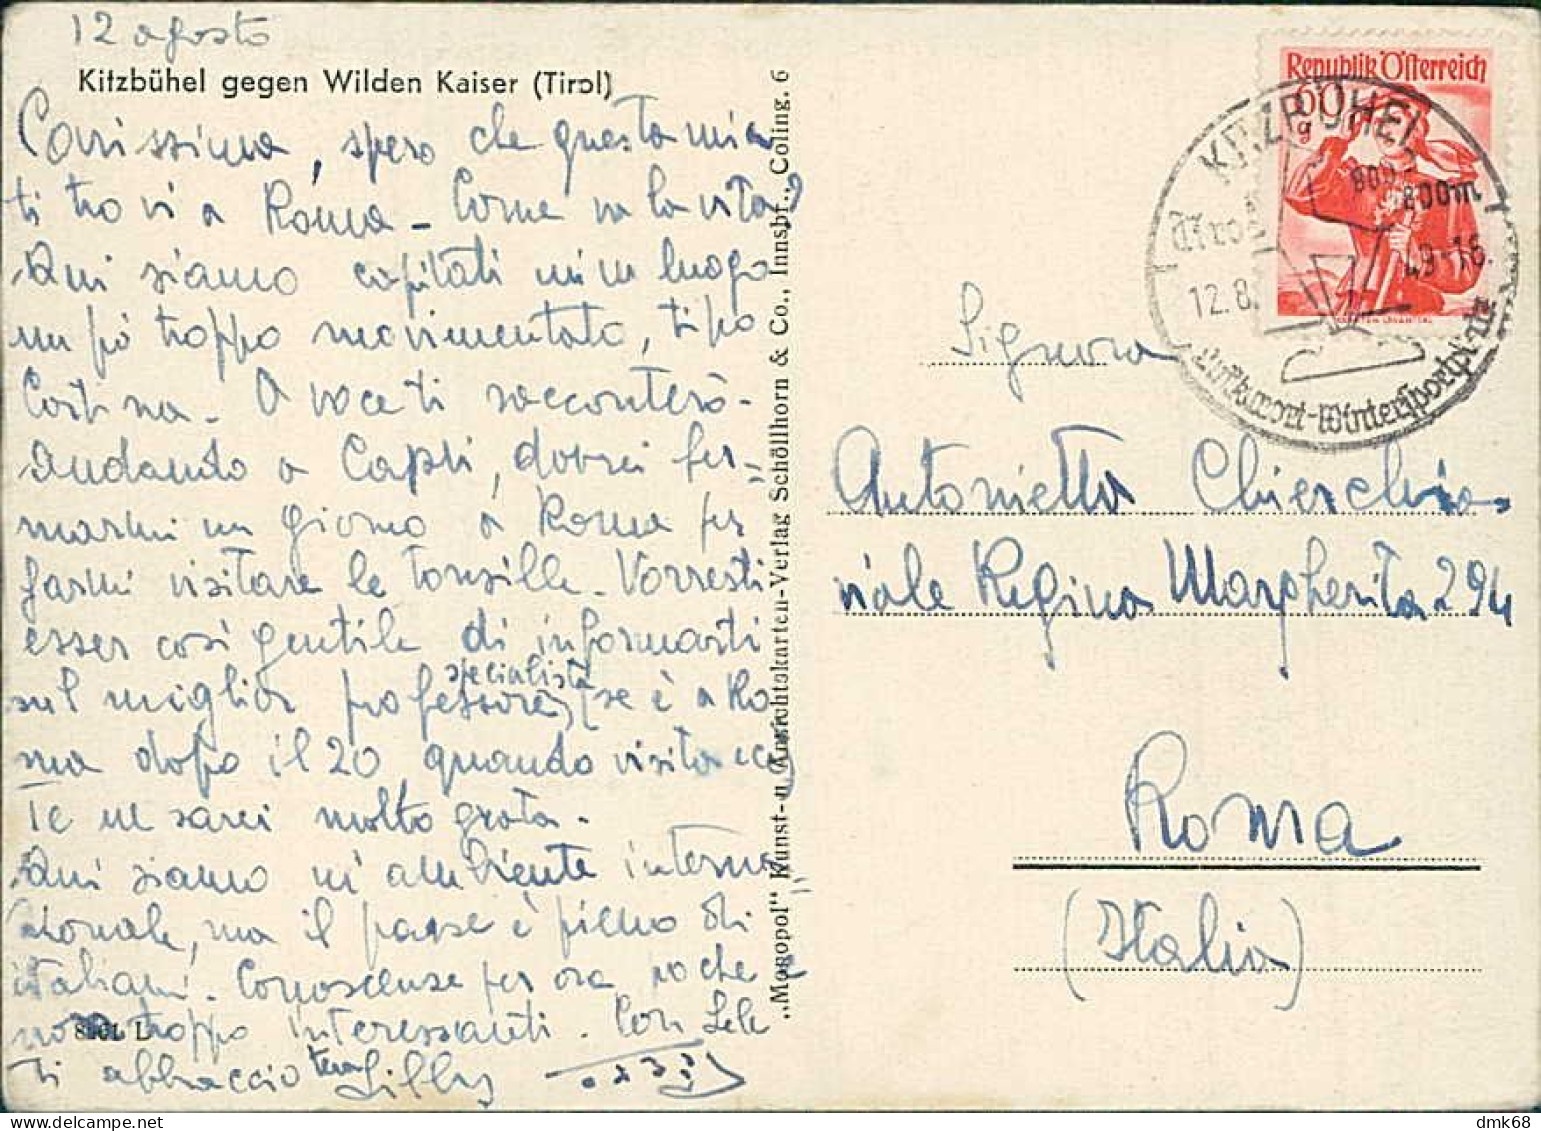 12 agosto
Kitzbühel gegen Wilden Kaiser (Tirol)
Carissima, spero che questa mia
ti trovi a Roma - Come va la vita?
Qui siamo capitati in un luogo
un pò troppo movimentato, tipo
Cortina. A voce ti racconterò -
Andando a Capri, dovrei fer=
marmi un giorno a Roma per
farmi visitare le tonsille. Vorresti
esser così gentile di informarti
sul miglior professore specialista (se è a Ro
ma dopo il 20 quando visita ecc)
Te ne sarei molto grata.
Qui siamo in ambiente interna=
zionale, ma il paese è pieno di
italiani. Conoscenze per ora poche
non troppo interessanti. Con Lele
ti abbraccio tua Lilly
Republik Österreich
60
g
KITZBÜHEL
Tirol
800m
12.8.49-16.
Luftkurort-Wintersportplatz
Signora
Antonietta Chierchia
viale Regina Margherita 294
Roma
(Italia)
„Monopol" Kunst- u. Ansichtskarten-Verlag Schöllhorn & Co., Innsbr., Coling. 6
dmk68